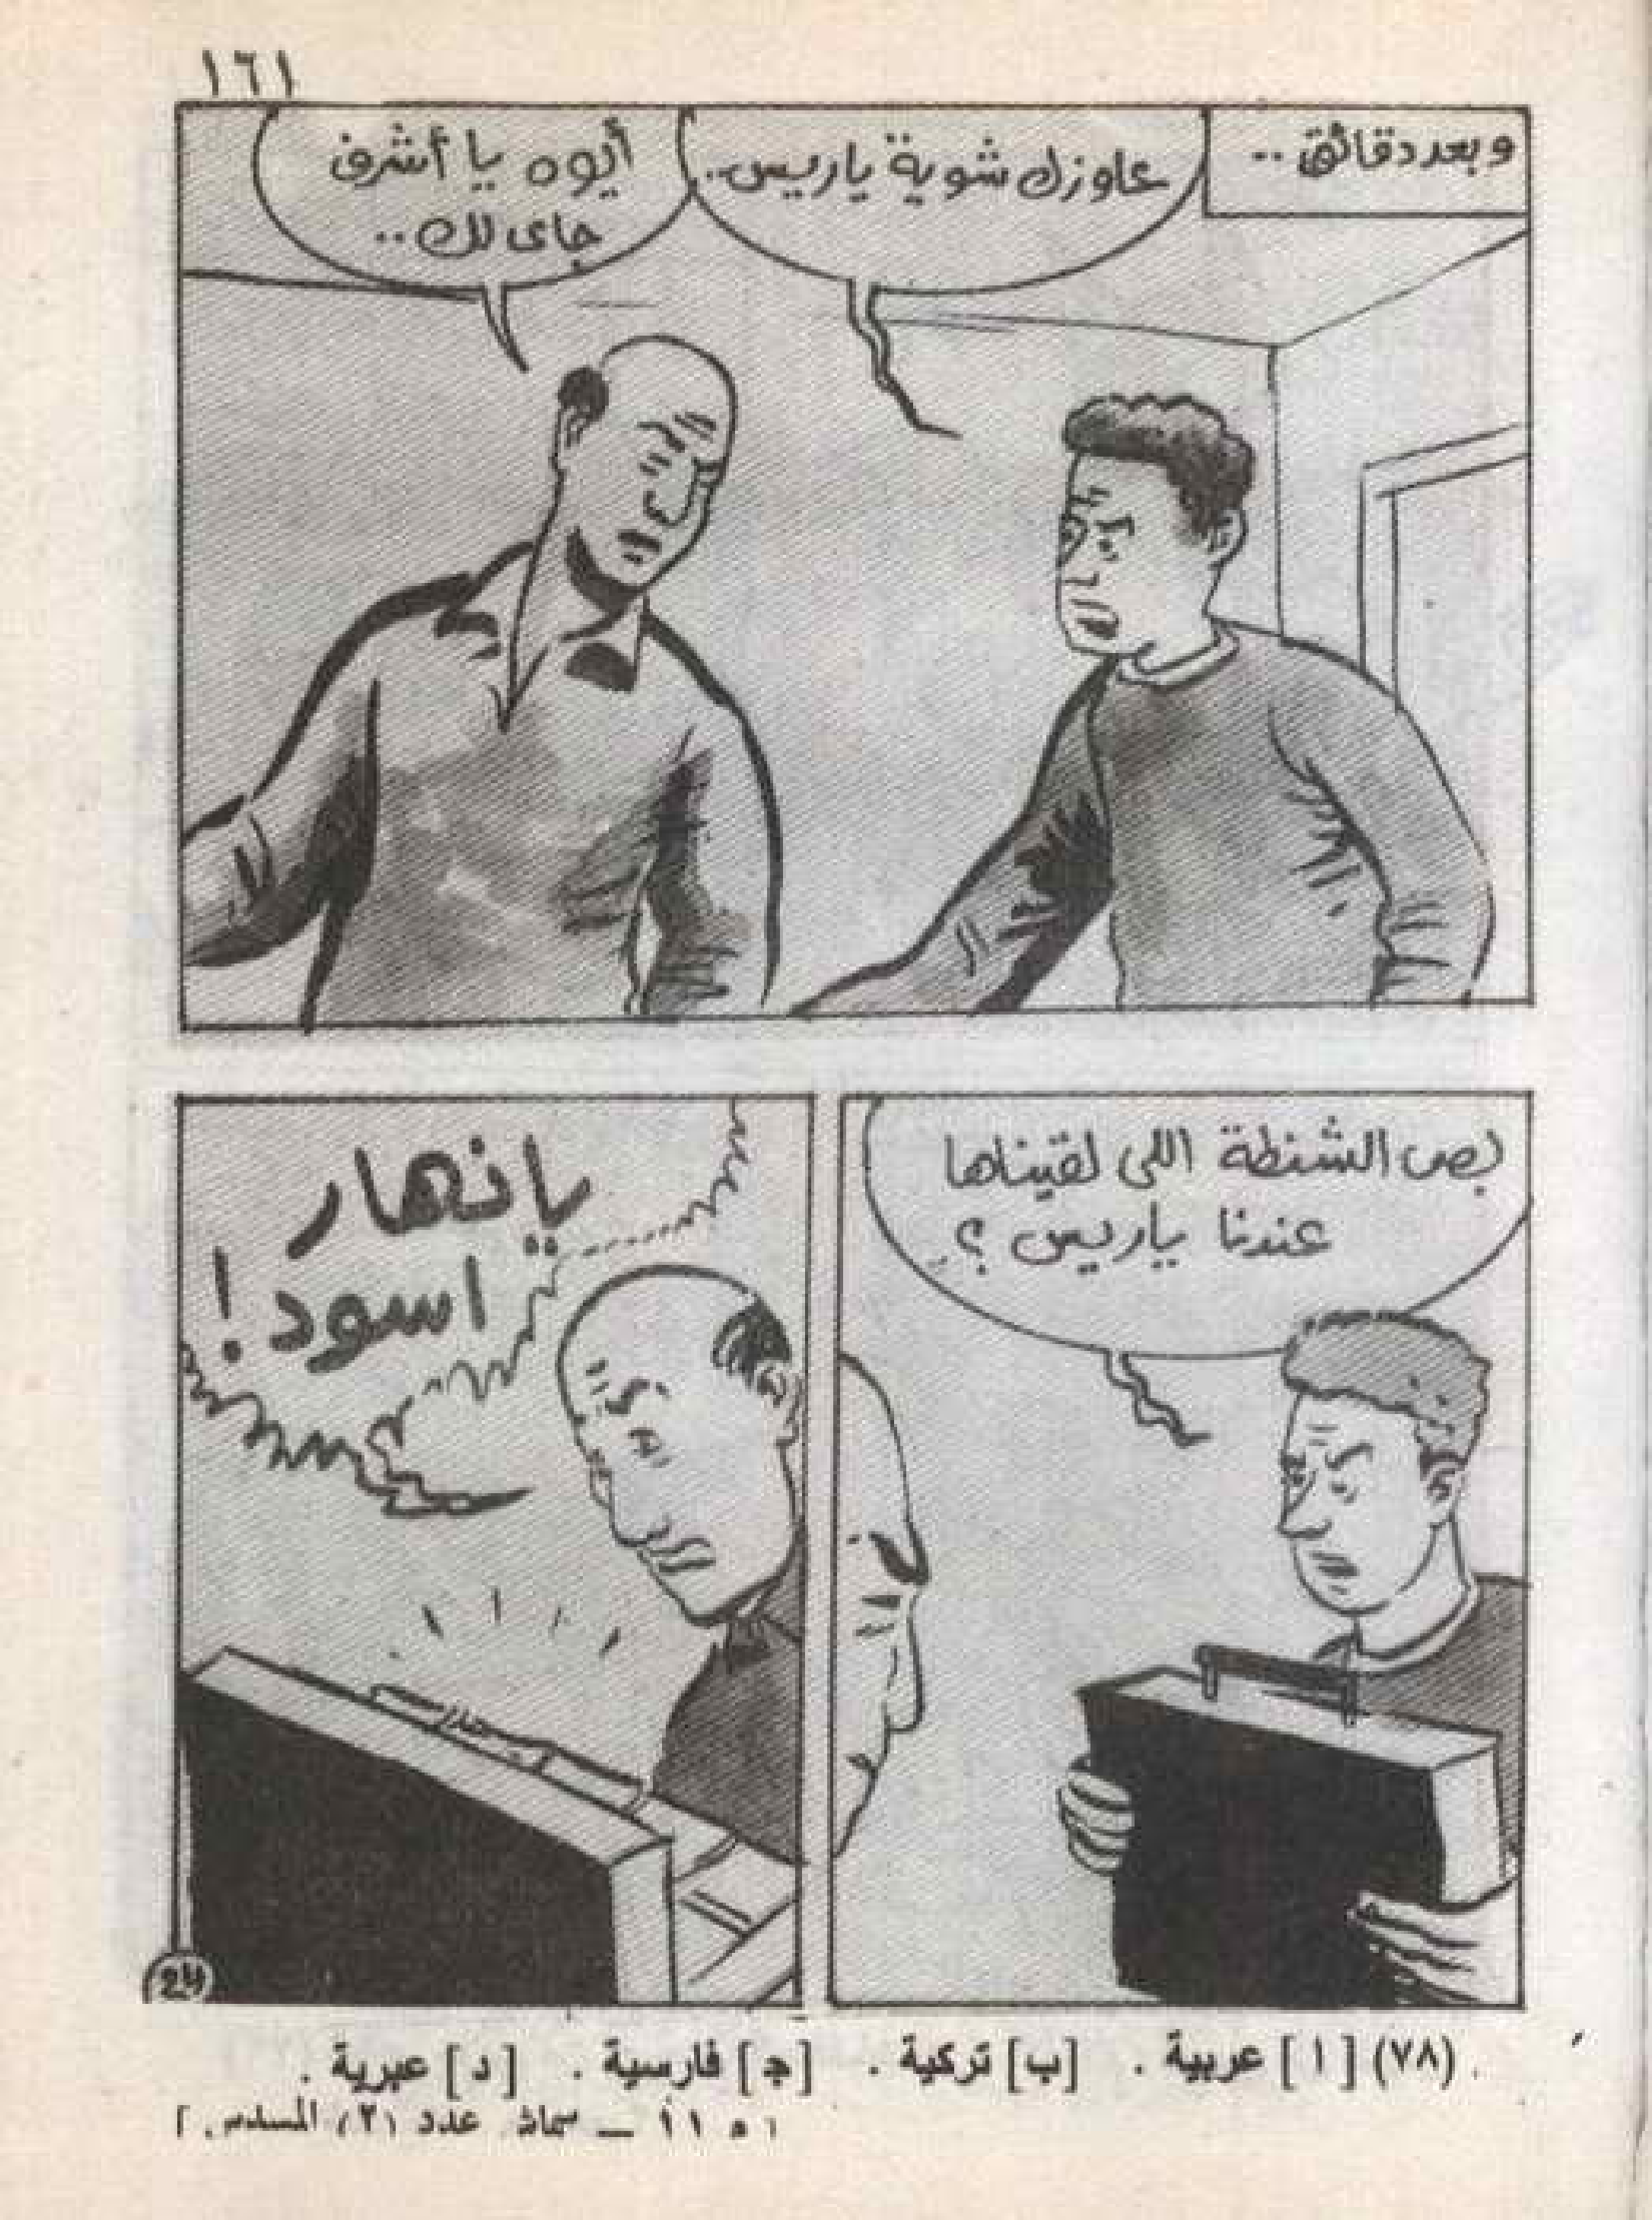 ١٦١
وبعد دقائق ..
عاوزك شوية ياريس ..
أيوه يا أشرف
جاى لك ..
بص الشنطة اللى لقيناها
عندنا ياريس ؟
يانهار
اسود !
24
(٧٨) [ ا ] عربية . [ب] تركية . [جـ] فارسية . [د] عبرية .
[ م ١١ ــ سماش عدد (٣) المسدس . ]